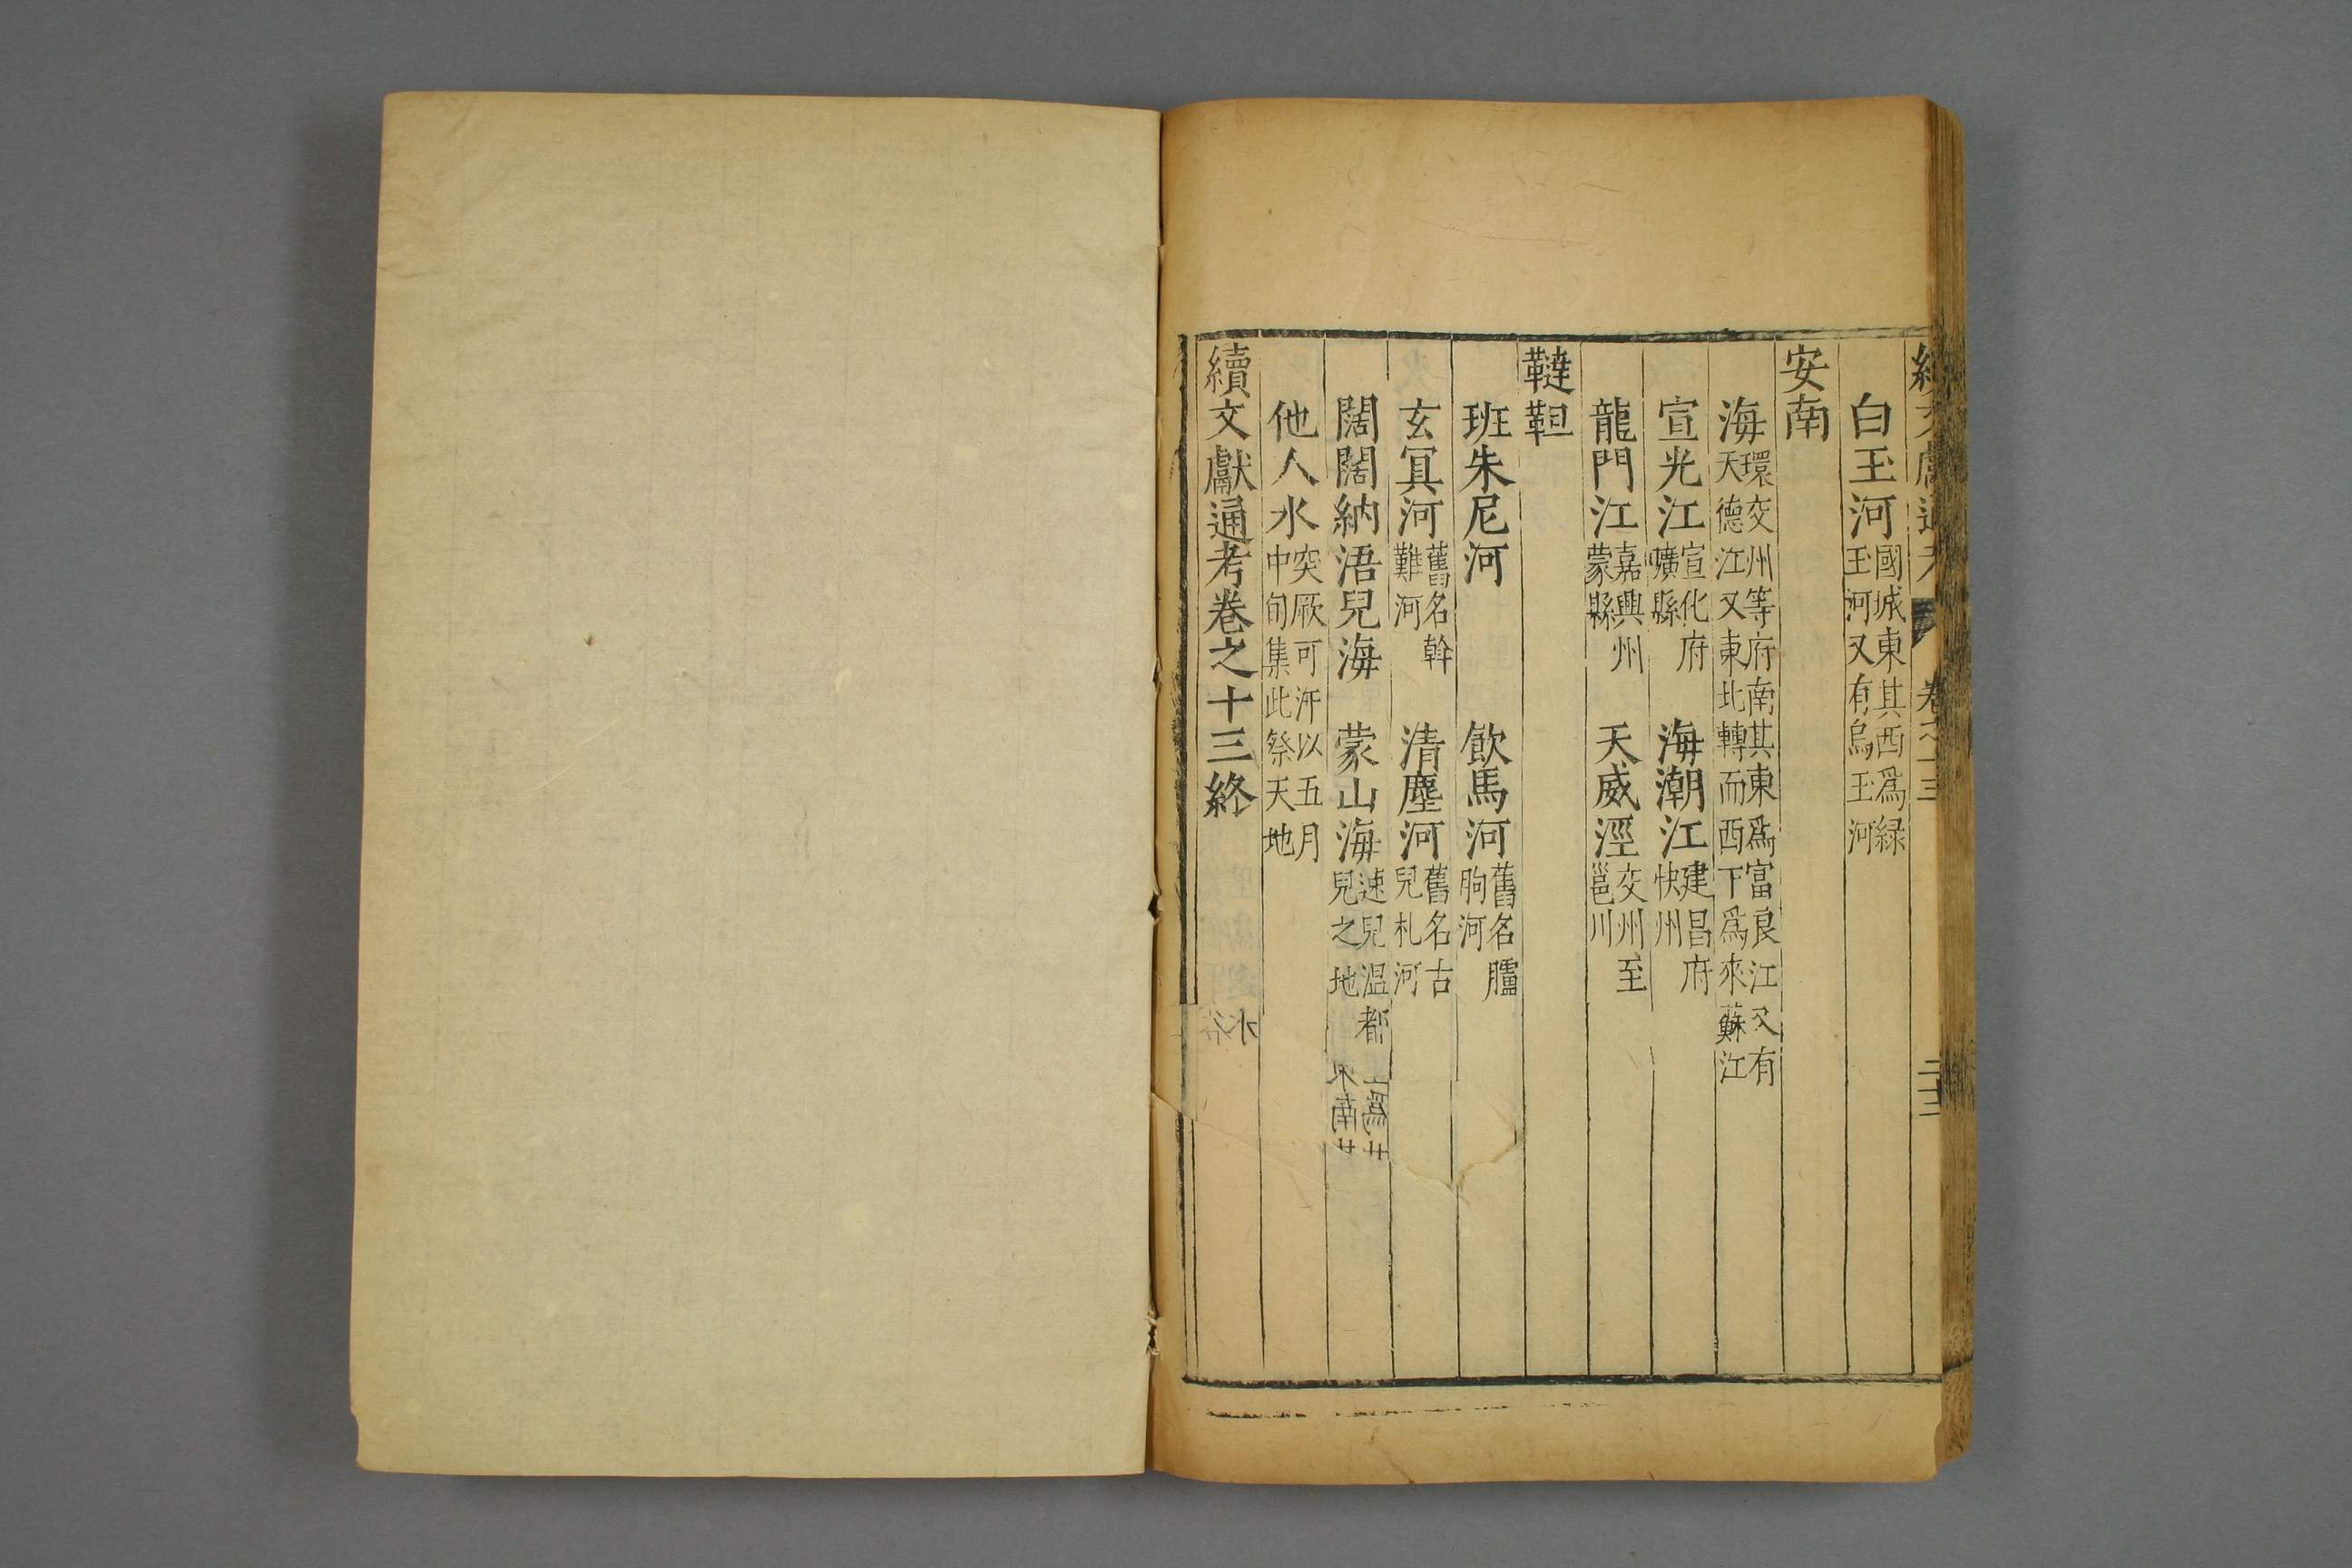 白玉河國城東其西爲緑玉河又有烏玉河
安南
海環交州等府南其東爲富良江又有天德江又東北轉而西下爲來蘇江
宣光江宣化府曠縣 海潮江建昌府快州
龍門江嘉興州蒙縣 天威涇交州至邕川
韃靼
班朱尼河 飲馬河舊名臚朐河
玄冥河舊名幹難河 清塵河舊名古兒札河
闊闊納浯兒海 蒙山海速兒温都兒之地
他人水突厥可汗以五月中旬集此祭天地
續文獻通考卷之十三終